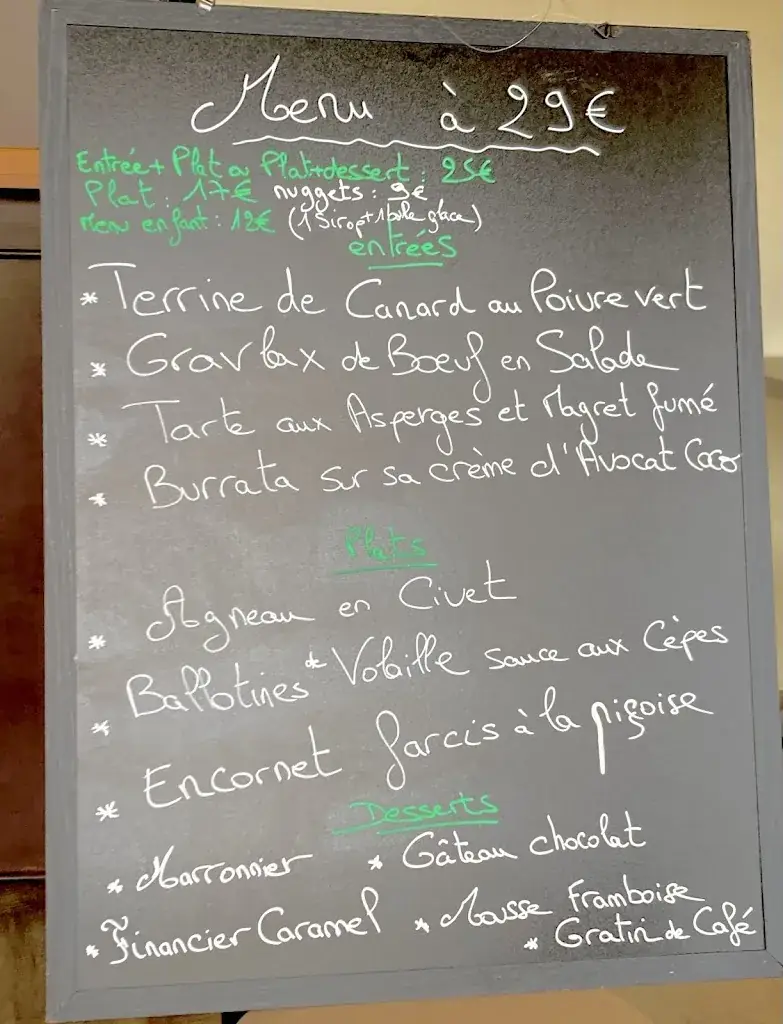 Menu à 29€
Entrée + Plat ou Plat+dessert : 25€
Plat : 17€ nuggets : 9€
Menu enfant : 12€ (1 Sirop + 1 boule glace)
entrées
* Terrine de Canard au Poivre vert
* Gravlax de Boeuf en Salade
* Tarte aux Asperges et Magret fumé
* Burrata sur sa crème d'Avocat Coco
Plats
* Agneau en Civet
* Ballotines de Volaille sauce aux Cèpes
* Encornet farcis à la niçoise
Desserts
* Marronnier * Gâteau chocolat
* Financier Caramel * Mousse Framboise
* Gratin de Café